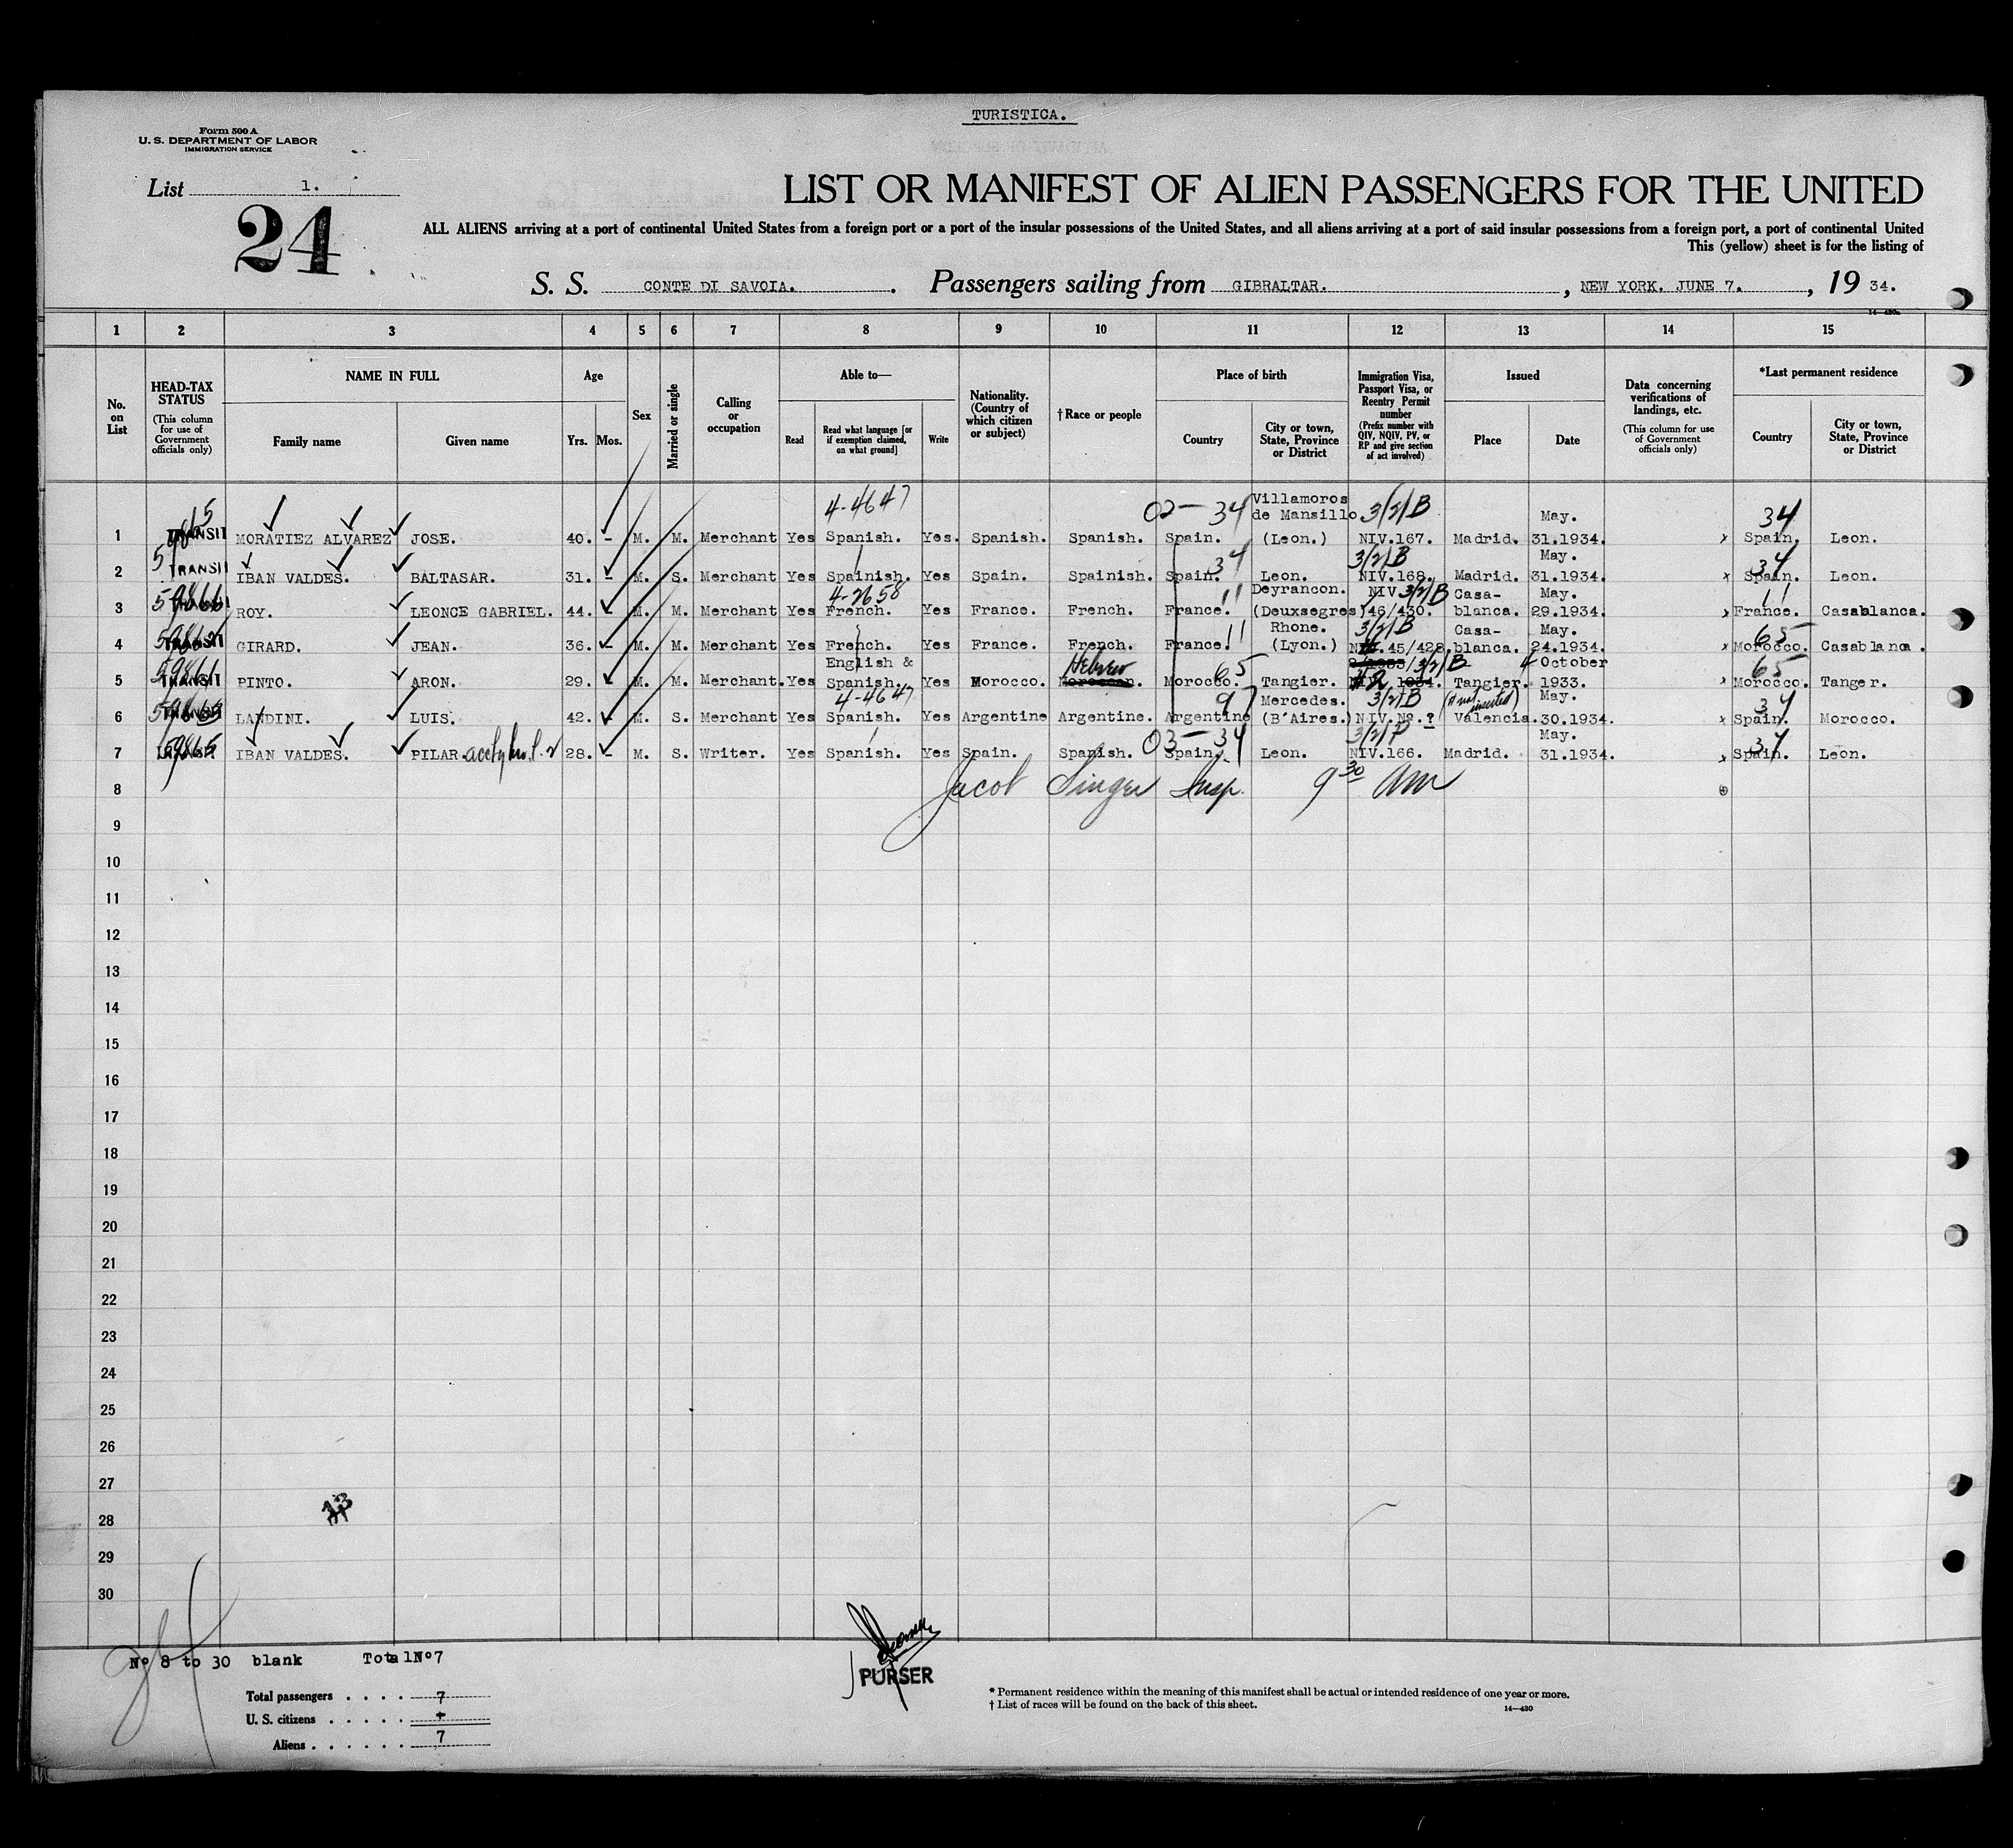 TURISTICA.
Form 500 A
U. S. DEPARTMENT OF LABOR
IMMIGRATION SERVICE
List 1.
24
LIST OR MANIFEST OF ALIEN PASSENGERS FOR THE UNITED
ALL ALIENS arriving at a port of continental United States from a foreign port or a port of the insular possessions of the United States, and all aliens arriving at a port of said insular possessions from a foreign port, a port of continental United
This (yellow) sheet is for the listing of
S. S. CONTE DI SAVOIA. Passengers sailing from GIBRALTAR. , NEW YORK. JUNE 7. , 19 34.
14—430a
1 2 3 4 5 6 7 8 9 10 11 12 13 14 15
No. on List
HEAD-TAX STATUS (This column for use of Government officials only)
NAME IN FULL Family name Given name
Age Yrs. Mos.
Sex
Married or single
Calling or occupation
Able to— Read Read what language [or if exemption claimed, on what ground] Write
Nationality. (Country of which citizen or subject)
† Race or people
Place of birth Country City or town, State, Province or District
Immigration Visa, Passport Visa, or Reentry Permit number (Prefix number with QIV, NQIV, PV, or RP and give section of act involved)
Issued Place Date
Data concerning verifications of landings, etc. (This column for use of Government officials only)
*Last permanent residence Country City or town, State, Province or District
4-4647 02-34 Villamoros de Mansillo 3/2/B May. 34
1 TRANSIT MORATIEZ ALVAREZ JOSE. 40. - M. M. Merchant Yes Spanish. Yes. Spanish. Spanish. Spain. (Leon.) NIV.167. Madrid. 31.1934. x Spain. Leon.
34 3/2/B May. 34
2 TRANSIT IBAN VALDES. BALTASAR. 31. - M. S. Merchant Yes Spainish. Yes Spain. Spainish. Spain. Leon. NIV.168. Madrid. 31.1934. x Spain. Leon.
4-2658 11 Deyrancon. NIV 3/2/B Casa- May. 11
3 ROY. LEONCE GABRIEL. 44. M. M. Merchant Yes French. Yes France. French. France. (Deuxsegres) 46/430. blanca. 29.1934. x France. Casablanca.
11 Rhone. 3/2/B Casa- May. 65
4 TRANSIT GIRARD. JEAN. 36. - M. M. Merchant Yes French. Yes France. French. France. (Lyon.) 45/428. blanca. 24.1934. x Morocco. Casablanca.
English & Hebrew 65 3/2/B 4 October 65
5 TRANSIT PINTO. ARON. 29. M. M. Merchant. Yes Spanish. Yes Morocco. Moroccan. Morocco. Tangier. 1934. Tangier. 1933. Morocco. Tanger.
4-4647 97 Mercedes. 3/2/B (# not inserted) May. 34
6 LANDINI. LUIS. 42. M. S. Merchant Yes Spanish. Yes Argentine Argentine. Argentine (B'Aires.) NIV.No.? Valencia. 30.1934. x Spain. Morocco.
03-34 May. 34
7 IBAN VALDES. PILAR. 28. - M. S. Writer. Yes Spanish. Yes Spain. Spanish. Spain. Leon. NIV.166. Madrid. 31.1934. Spain. Leon.
8 Jacob Singer Insp. 9 30 Am
9
10
11
12
13
14
15
16
17
18
19
20
21
22
23
24
25
26
27
28
29
30
Nº 8 to 30 blank Total Nº 7
PURSER
Total passengers . . . . 7
U. S. citizens . . . . .
Aliens . . . . . . 7
* Permanent residence within the meaning of this manifest shall be actual or intended residence of one year or more.
† List of races will be found on the back of this sheet.
14—430